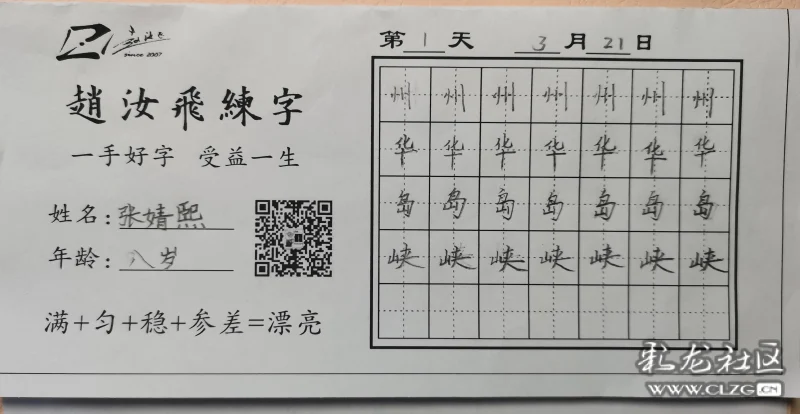 SINCE 2007
趙汝飛練字
一手好字 受益一生
姓名:张婧熙
年龄:八岁
满+匀+稳+参差=漂亮
第1天 3月21日
州州州州州州州
华华华华华华华
岛岛岛岛岛岛岛
峡峡峡峡峡峡峡
彩龙社区
WWW.CLZG.CN